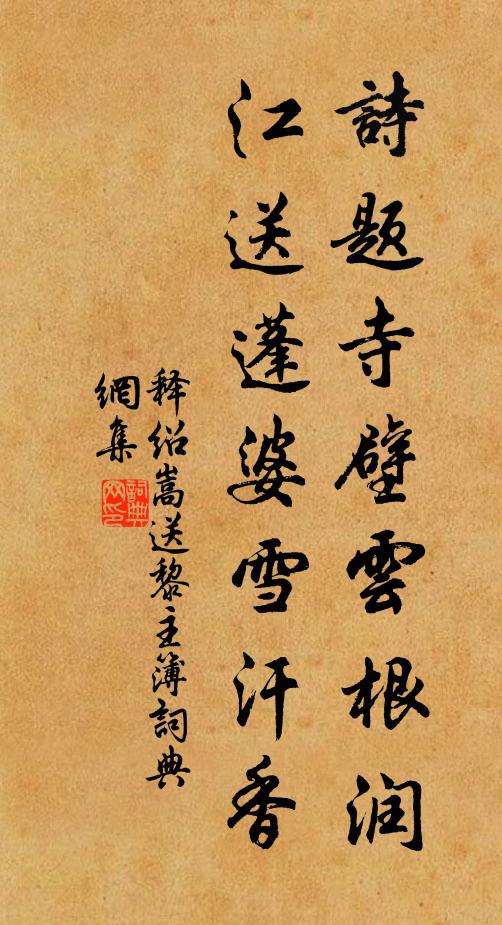 詩题寺壁雲根润
江送蓬婆雪汗香
释绍嵩送黎主簿詞典
網集
詞典
网印